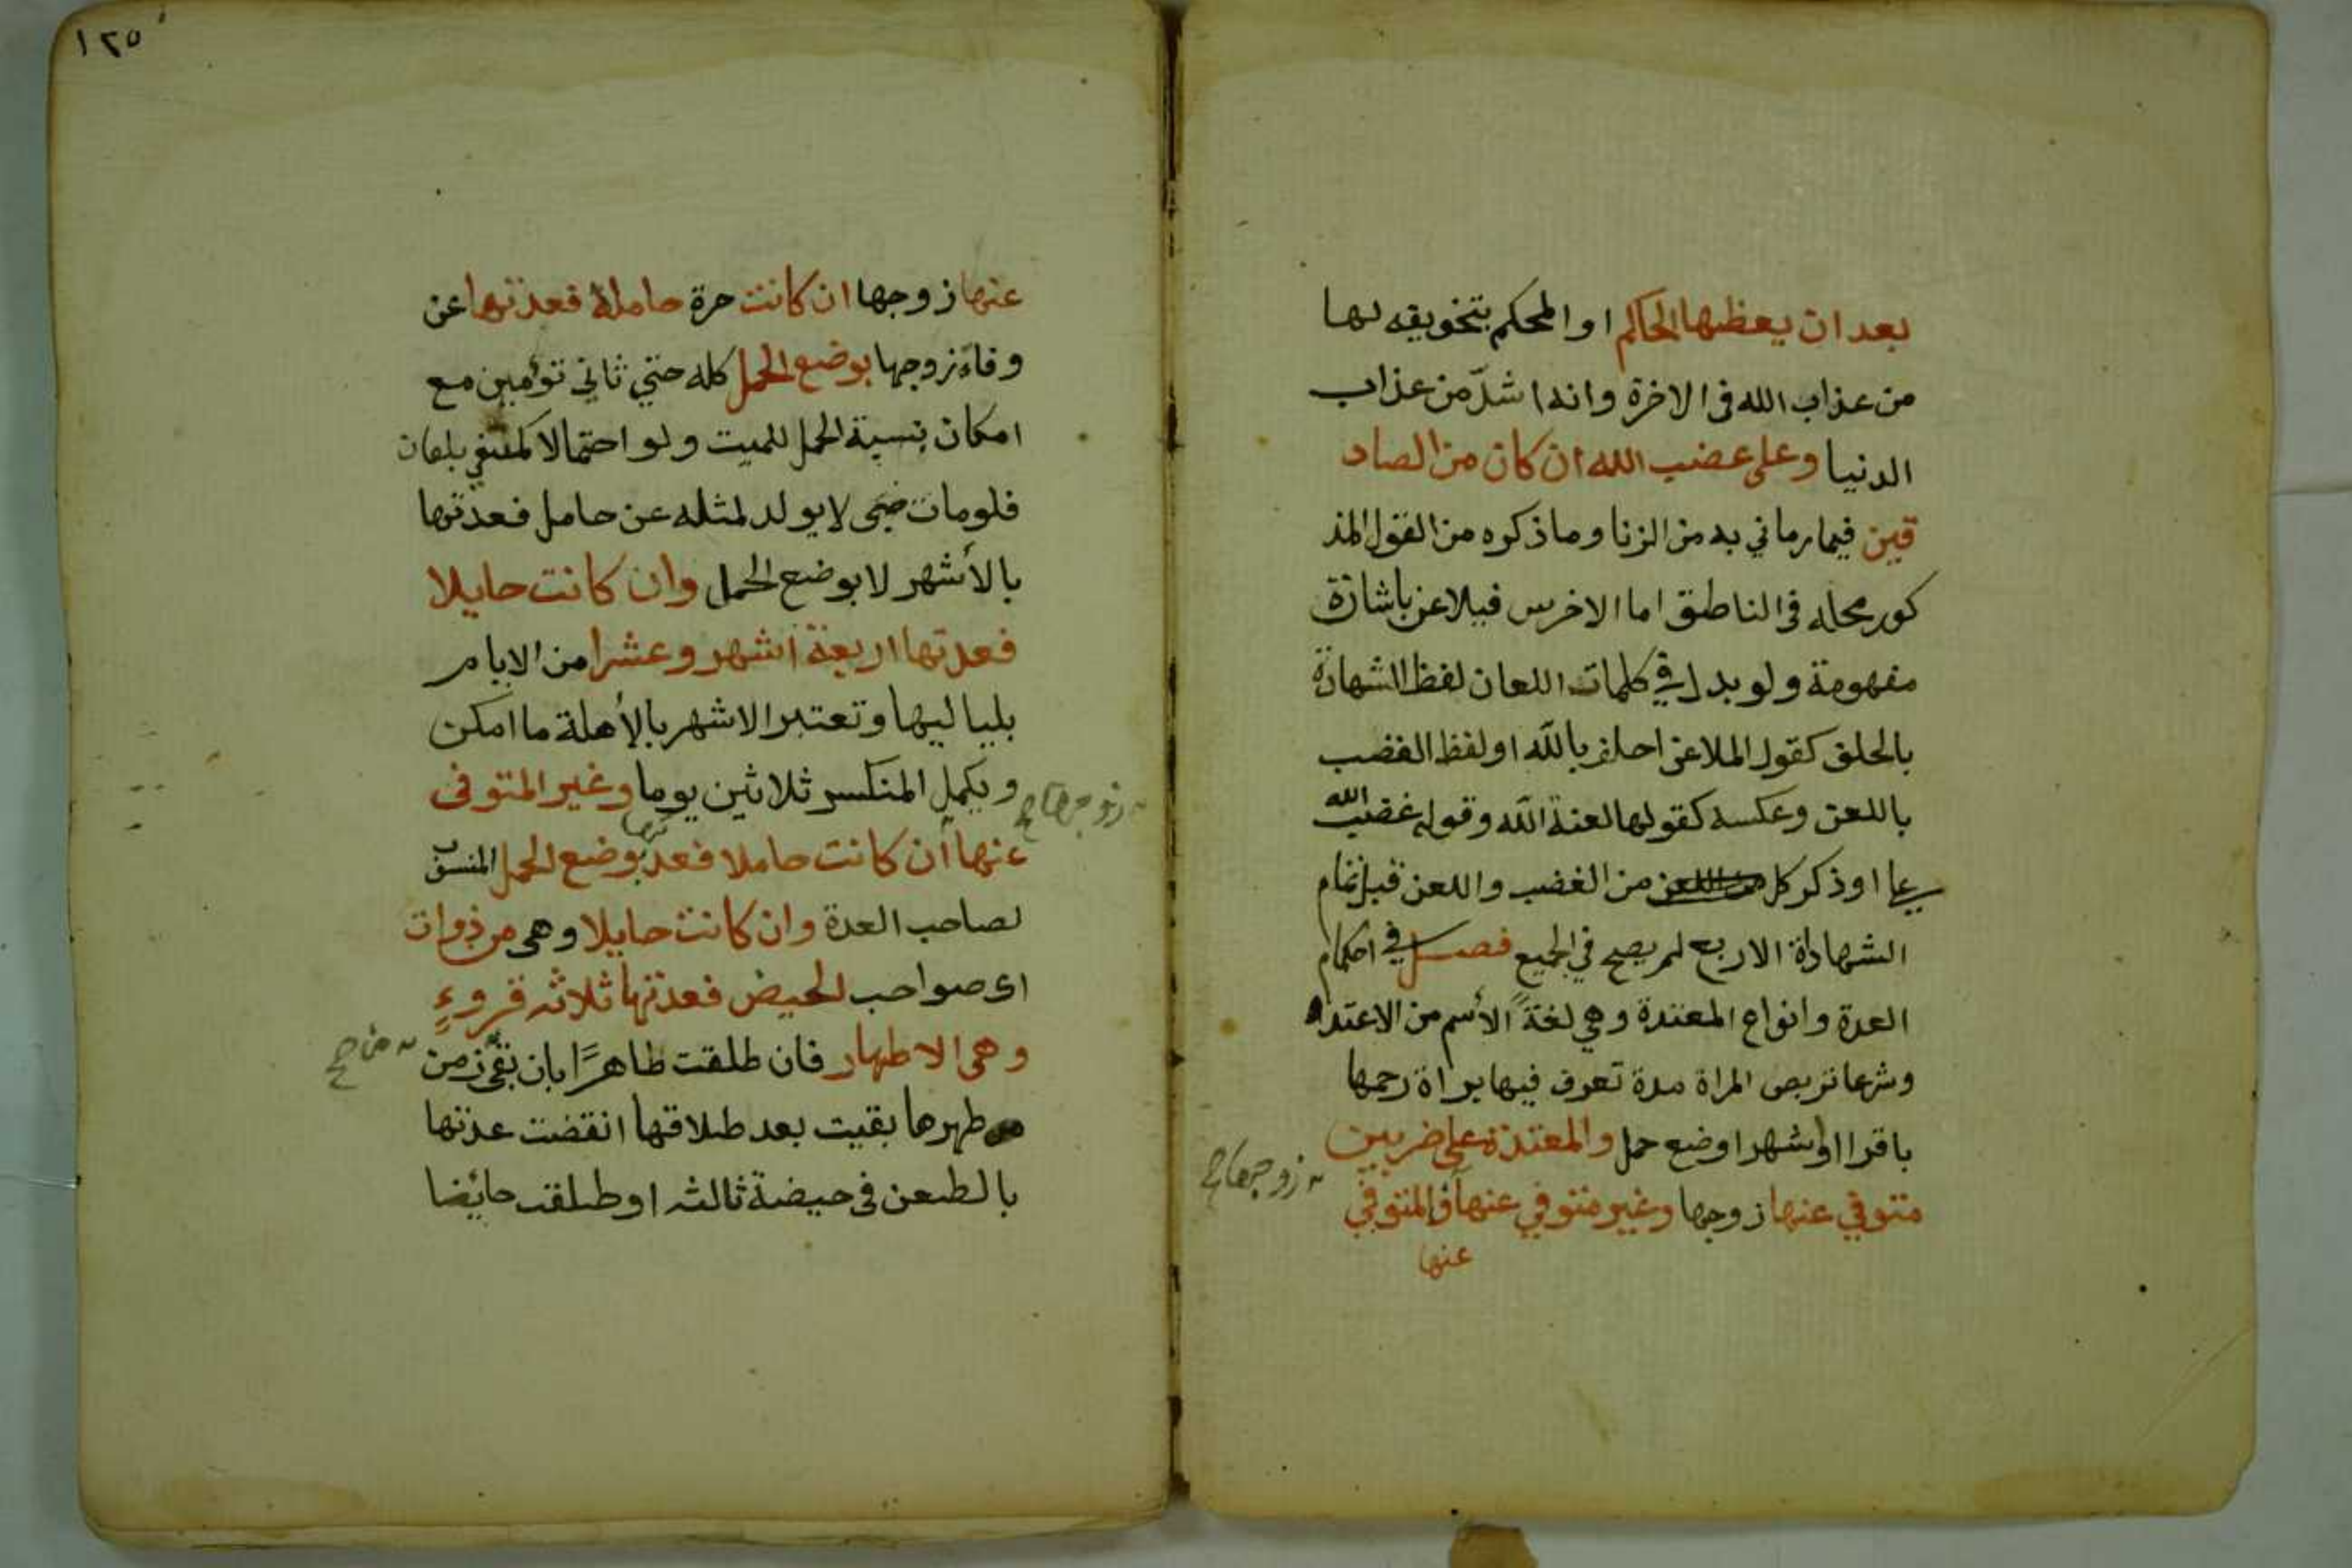 بعد ان يعظها الحاكم او المحكم بتخويفه لها
من عذاب الله في الاخرة وانه اشدّ من عذاب
الدنيا وعلى غضب الله ان كان من الصاد
قين فيما رماني به من الزنا وما ذكره من القول المذ
كور محله في الناطق اما الاخرس فيلاعن باشارة
مفهومة ولو بدل في كلمات اللعان لفظ الشهادة
بالحلف كقول الملاعن احلف بالله او لفظ الغضب
باللعن وعكسه كقولها لعنة الله وقوله غضب الله
عليها او ذكر كل من الغضب واللعن قبل تمام
الشهاداة الاربع لم يصح في الجميع فصل في احكام
العدة وانواع المعتدة وهي لغةً الأسم من الاعتداد
وشرعا تربص المراة مدة تعرف فيها براة رحمها
باقرا او اشهر او ضع حمل والمعتدة على ضربين
زوجها صح
متوفي عنها زوجها وغير متوفي عنها فالمتوفي
عنها
١٢٥
عنها زوجها ان كانت حرة حاملا فعدتها عن
وفاة زوجها بوضع الحمل كله حتي ثاني توأمين مع
امكان نسبة الحمل للميت ولو احتمالا كمنفي بلعان
فلو مات صبى لا يولد لمثله عن حامل فعدتها
بالأشهر لا بوضع الحمل وان كانت حايلا
فعدتها اربعة اشهر وعشرا من الايام
بلياليها وتعتبر الاشهر بالأهلة ما امكن
ويكمل المنكسر ثلاثين يوما وغير المتوفى
زوجها صح
عنها ان كانت حاملا فعدتها بوضع الحمل المنسوب
لصاحب العدة وان كانت حايلا وهى من ذوات
اى صواحب الحيض فعدتها ثلاثه قروءٍ
وهى الاطهار فان طلقت طاهرًا بان بقى زمن
من صح
طهرها بقيت بعد طلاقها انقضت عدتها
بالطعن فى حيضة ثالثه او طلقت حائضا